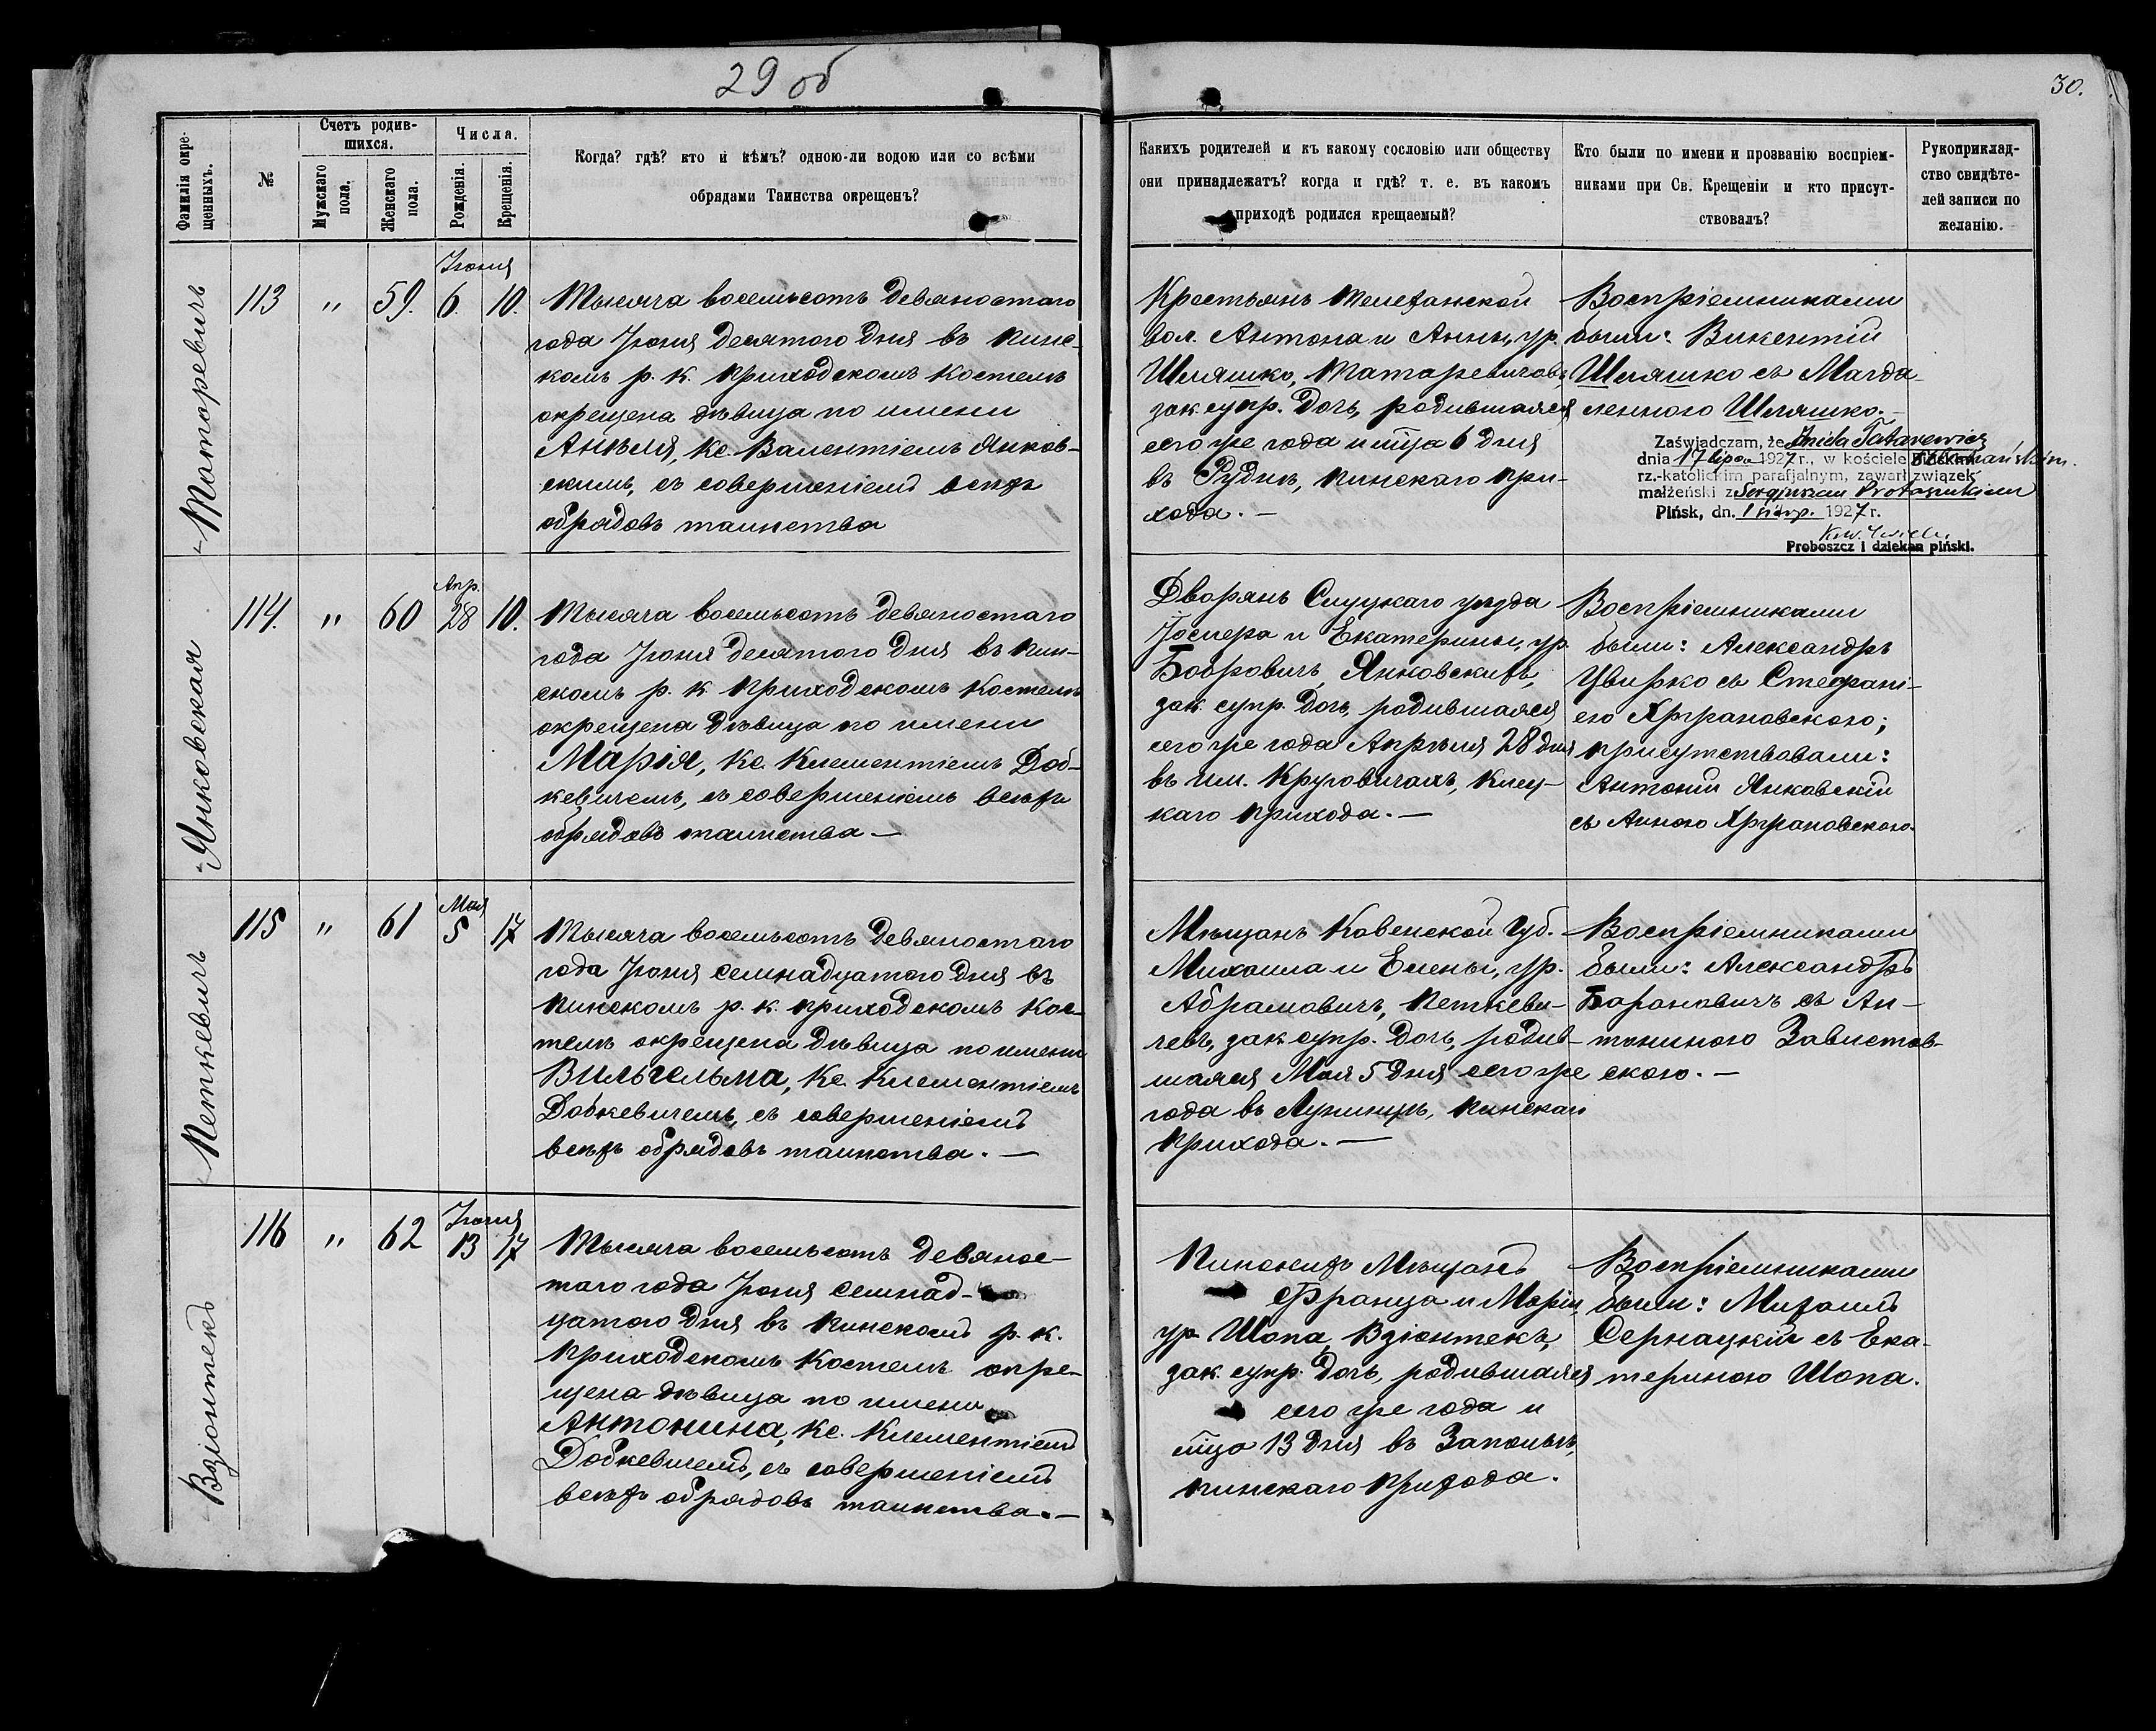 29 об
30.
Фамилія окрещенныхъ.
№
Счетъ родив-
шихся.
Мужскаго пола.
Женскаго пола.
Числа.
Рожденія.
Крещенія.
Когда? гдѣ? кто и кѣмъ? одною-ли водою или со всѣми
обрядами Таинства окрещенъ?
Какихъ родителей и къ какому сословію или обществу
они принадлежатъ? когда и гдѣ? т. е. въ какомъ
приходѣ родился крещаемый?
Кто были по имени и прозванію воспріем-
никами при Св. Крещеніи и кто присут-
ствовалъ?
Рукоприклад-
ство свидѣте-
лей записи по
желанію.
Татаревичъ
113 " 59. Іюня 6. 10.
Тысяча восемьсотъ девяностаго
года Іюня десятаго дня въ Пинс-
комъ р. к. приходскомъ костелѣ
окрещена дѣвица по имени
Анѣля, кс. Валентіемъ Янков-
скимъ, съ совершеніемъ всѣхъ
обрядовъ таинства
Крестьянъ Телеханской
вол. Антона и Анны, ур.
Шляшко, Татаревичовъ
зак. супр. дочь, родившаяся
сего же года и мца 6 дня
въ Рудкѣ, Пинскаго при-
хода. —
Воспріемниками
были: Викентій
Шляшко съ Магда-
леною Шляшко. —
Zaświadczam, że Aniela Tatarewicz
dnia 17 lipca 1927 r., w kościele
rz.-katolickim parafjalnym, zawarł związek
małżeński z Sergjuszem Protasiukiem
Pińsk, dn. 1 sierp. 1927 r.
Proboszcz i dziekan piński.
Янковская
114. " 60 Апр. 28 10.
Тысяча восемьсотъ девяностаго
года Іюня десятаго дня въ Пин-
скомъ р. к. приходскомъ костелѣ
окрещена дѣвица по имени
Марія, кс. Клементіемъ Доб-
кевичемъ, съ совершеніемъ всѣхъ
обрядовъ таинства —
Дворянъ Слуцкаго уѣзда
Іосифа и Екатерины, ур.
Бобровичъ, Янковскихъ,
зак. супр. дочь, родившаяся
сего же года Апрѣля 28 дня
въ им. Круговичахъ, Клец-
каго прихода. —
Воспріемниками
были: Александръ
Цвирко съ Стефані-
ею Хржановскою;
присутствовали:
Антоній Янковскій
съ Анною Хржановскою.
Петкевичъ
115 " 61 Мая 5 17
Тысяча восемьсотъ девяностаго
года Іюня семнадцатаго дня въ
Пинскомъ р. к. приходскомъ кос-
телѣ окрещена дѣвица по имени
Вильгельма, кс. Клементіемъ
Добкевичемъ, съ совершеніемъ
всѣхъ обрядовъ таинства. —
Мѣщанъ Ковенской губ.
Михаила и Елены, ур.
Абрамовичъ, Петкеви-
чевъ, зак. супр. дочь, родив-
шаяся Мая 5 дня сего же
года въ Лунинцѣ, Пинскаго
прихода. —
Воспріемниками
были: Александръ
Барановичъ съ Ан-
тониною Завистов-
скою. —
Взіонтекъ
116 " 62 Іюня 13 17
Тысяча восемьсотъ девянос-
таго года Іюня семнад-
цатаго дня въ Пинскомъ р. к.
приходскомъ костелѣ окре-
щена дѣвица по имени
Антонина, кс. Клементіемъ
Добкевичемъ, съ совершеніемъ
всѣхъ обрядовъ таинства. —
Пинскихъ Мѣщанъ
Франца и Маріи,
ур. Шопа, Взіонтекъ,
зак. супр. дочь, родившаяся
сего же года и
мца 13 дня въ Запольѣ,
Пинскаго прихода.
Воспріемниками
были: Михаилъ
Сернацкій съ Ека-
териною Шопа.